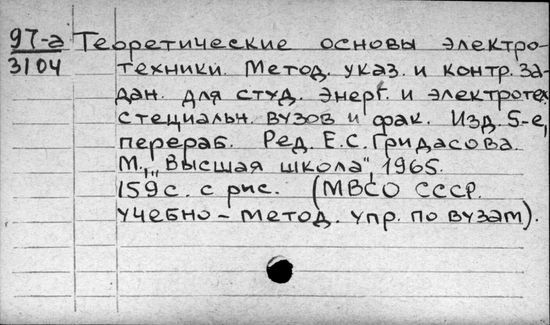 97-а Теоретические основы электро-
3104 техники. Метод. указ. и контр. за-
дан. для студ. энерг. и электротех.
стециальн. вузов и фак. Изд. 5-е,
перераб. Ред. Е.С. Гридасова.
М., „Высшая школа", 1965.
159 с. с рис. (МВСО СССР.
Учебно-метод. упр. по вузам).